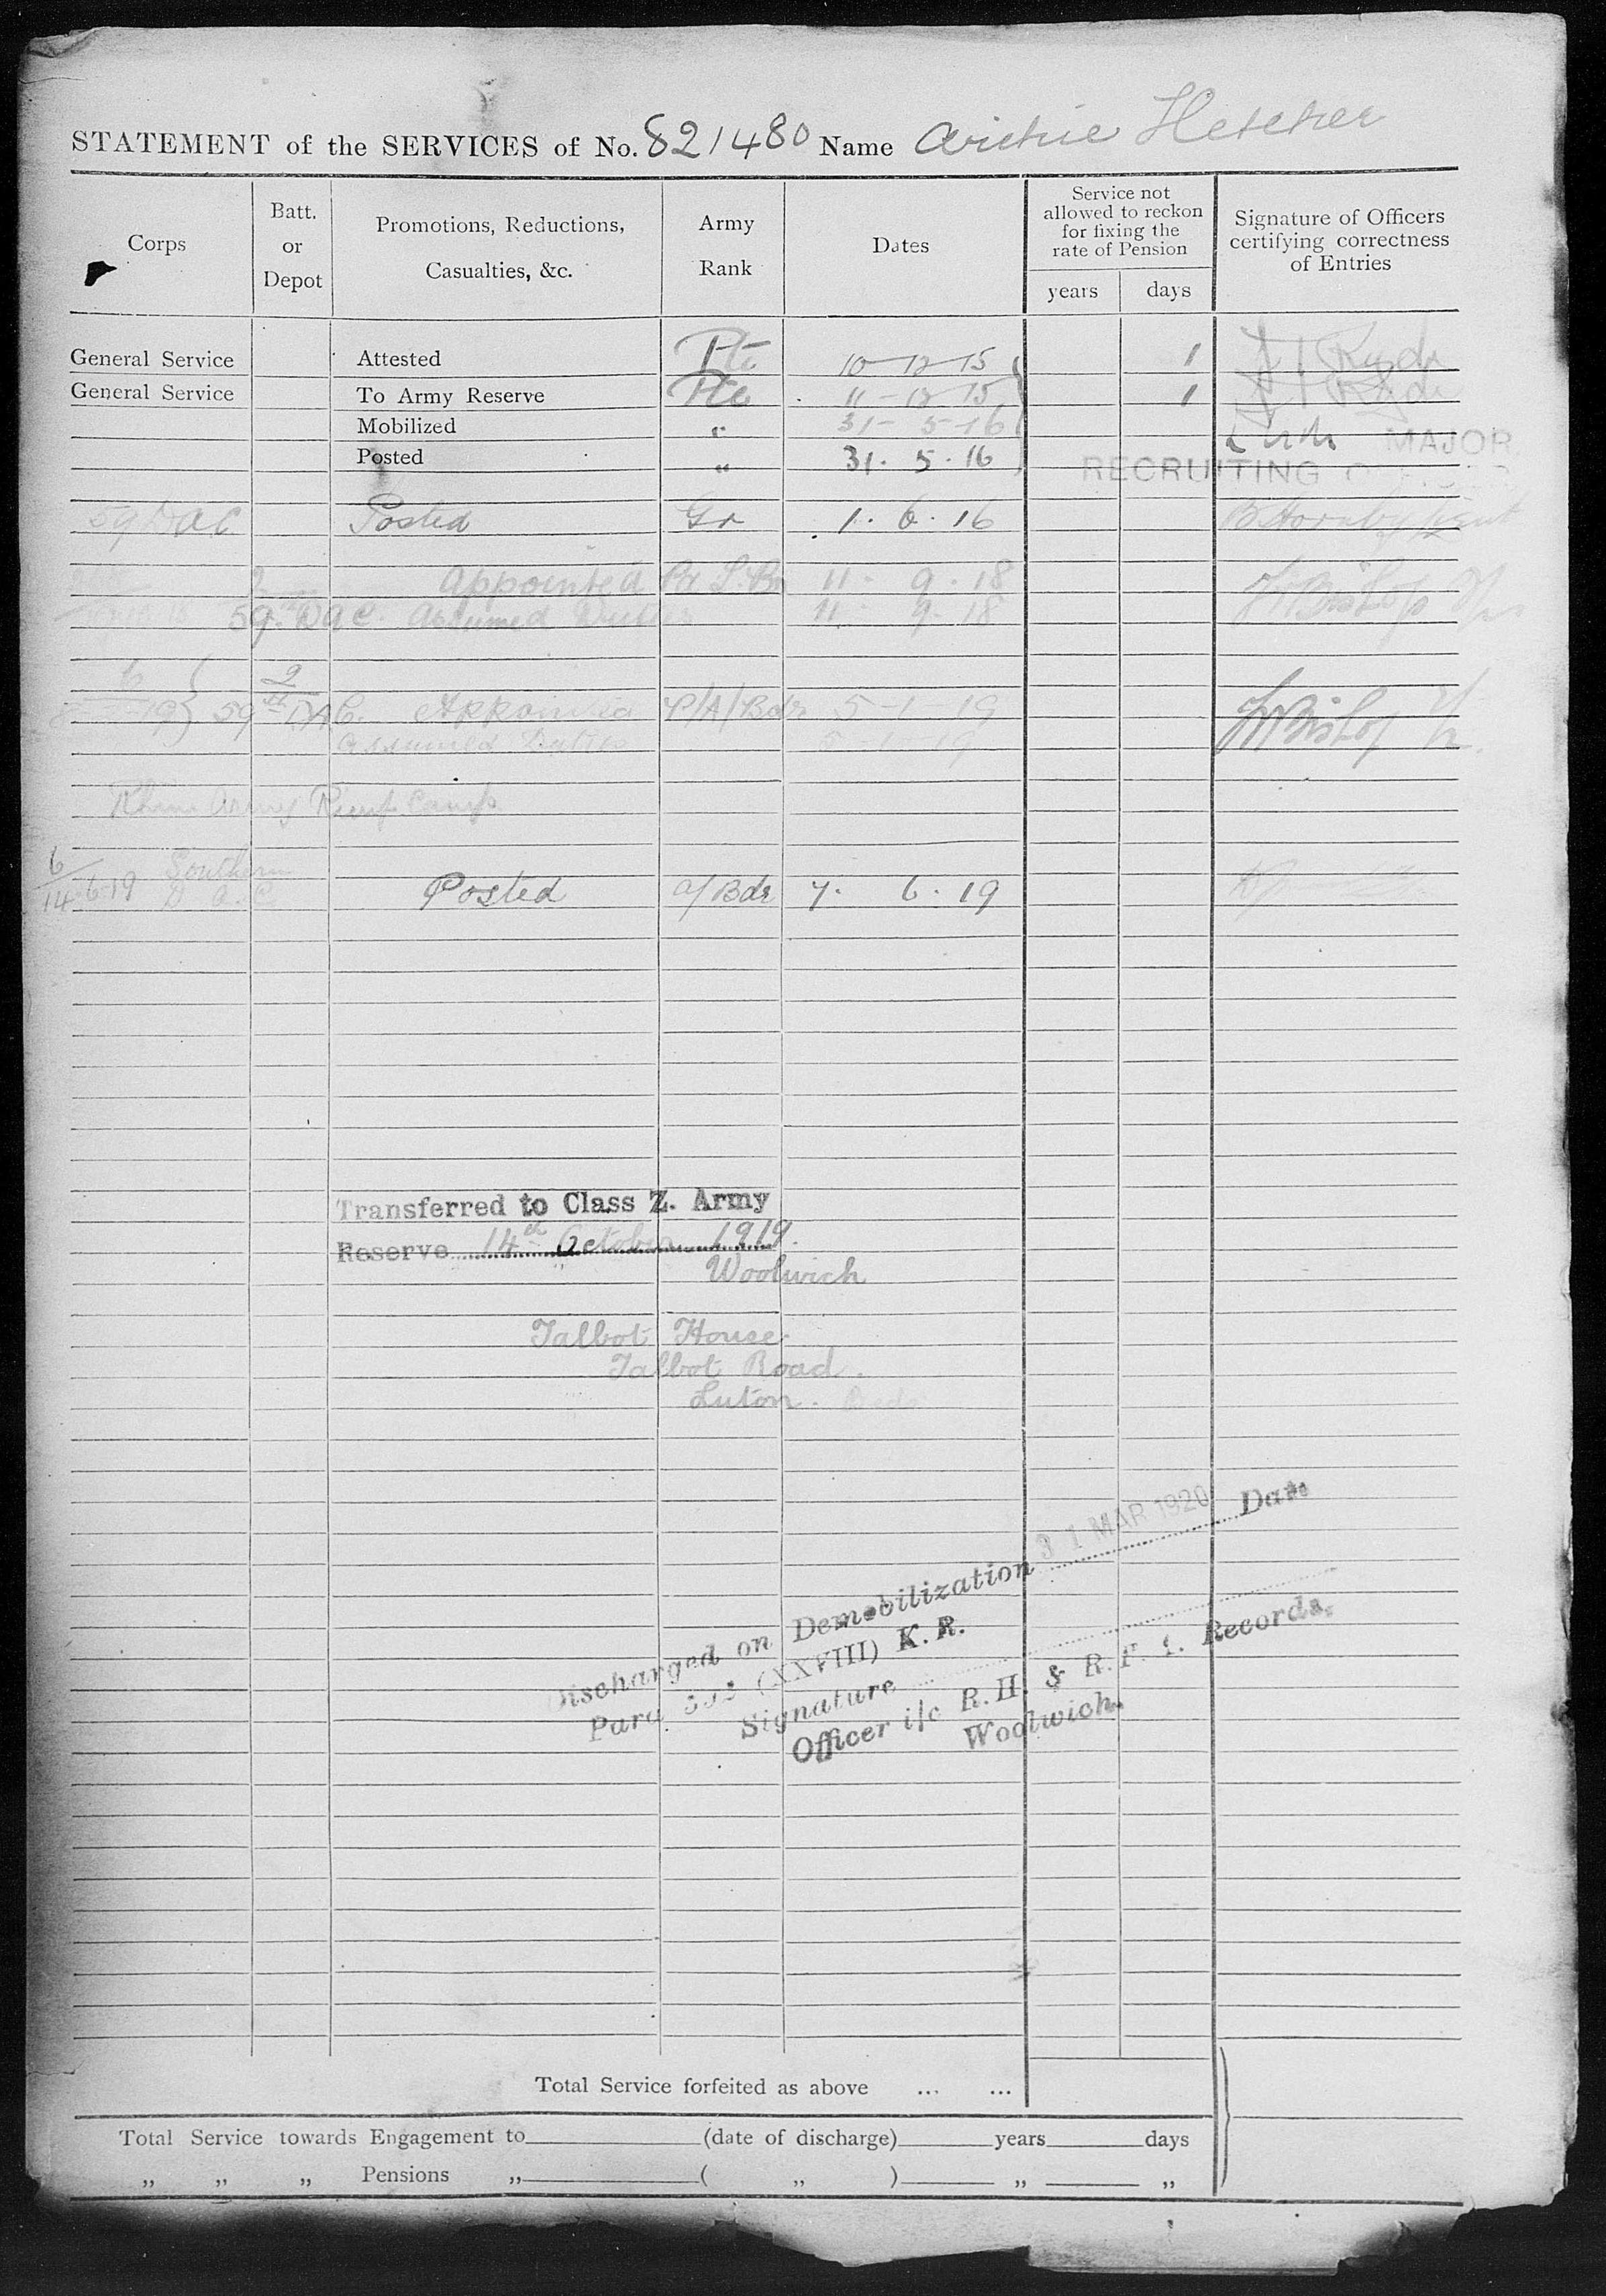 STATEMENT of the SERVICES of No. 821480 Name Archie
Corps
Batt. or Depot
Promotions, Reductions, Casualties, &c.
Army Rank
Dates
Service not allowed to reckon for fixing the rate of Pension
years days
Signature of Officers certifying correctness of Entries
General Service Attested Pte 10-12-15 1
General Service To Army Reserve Pte 11-12-15 1
Mobilized " 31-5-16
Posted " 31.5.16
MAJOR
RECRUITING
59 DAC Posted Gr 1.6.16
appointed 11.9.18
59th DAC. assumed Duties 11.9.18
59th DAC. Appointed P/A/Bdr 5-1-19
assumed Duties 5-1-19
Army Camp
6
14.6.19 Southern D.A.C. Posted a/Bdr 7.6.19
Transferred to Class Z. Army
Reserve 14th October 1919.
Woolwich
Talbot House.
Talbot Road.
Luton. Beds
31 MAR 1920 Date
Discharged on Demobilization
Para 392 (XXVIII) K.R.
Signature
Officer i/c R.H. & R.F.A. Records,
Woolwich.
Total Service forfeited as above ... ...
Total Service towards Engagement to (date of discharge) years days
„ „ „ Pensions „ ( „ ) „ „